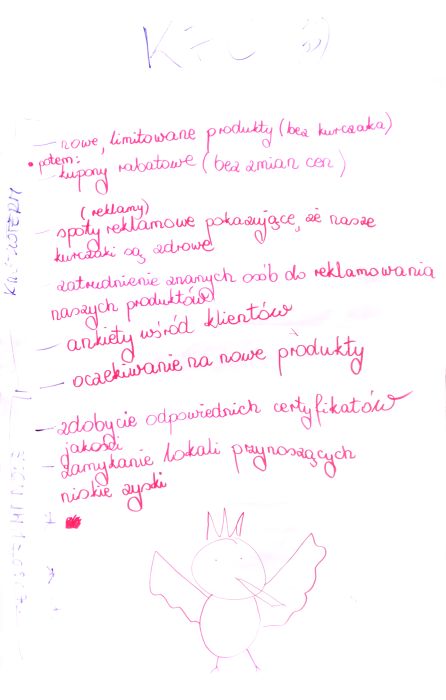 KFC :)
— nowe, limitowane produkty (bez kurczaka)
• potem:
— kupony rabatowe (bez zmian cen)
(reklamy)
— spoty reklamowe pokazujące, że nasze
kurczaki są zdrowe
— zatrudnienie znanych osób do reklamowania
naszych produktów
— ankiety wśród klientów
— oczekiwanie na nowe produkty
— zdobycie odpowiednich certyfikatów
jakości
— zamykanie lokali przynoszących
niskie zyski